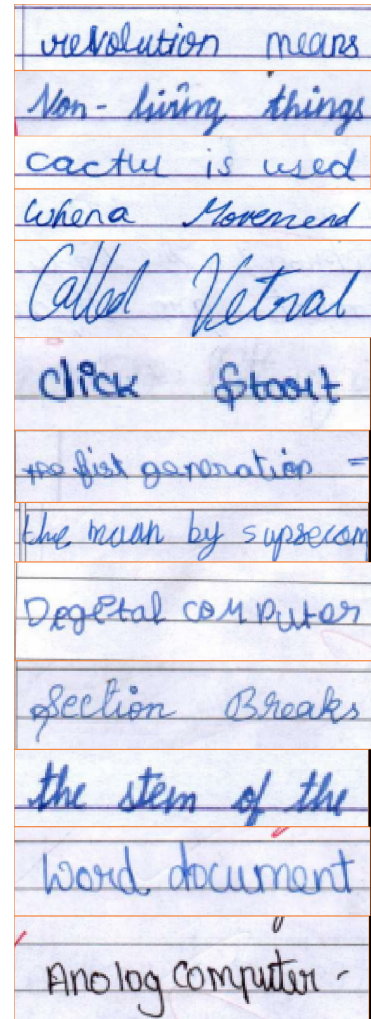 revolution means
Non-living things
cactus is used
When a Movemend
Called Vetral
click Start
the fist generation =
the mean by supsecom
Degetal computer
Section Breaks
the stem of the
Word document
Anolog computer -